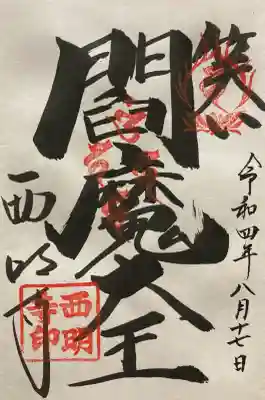 笑い
閻魔大王
令和四年八月十七日
西明寺
西明
寺印